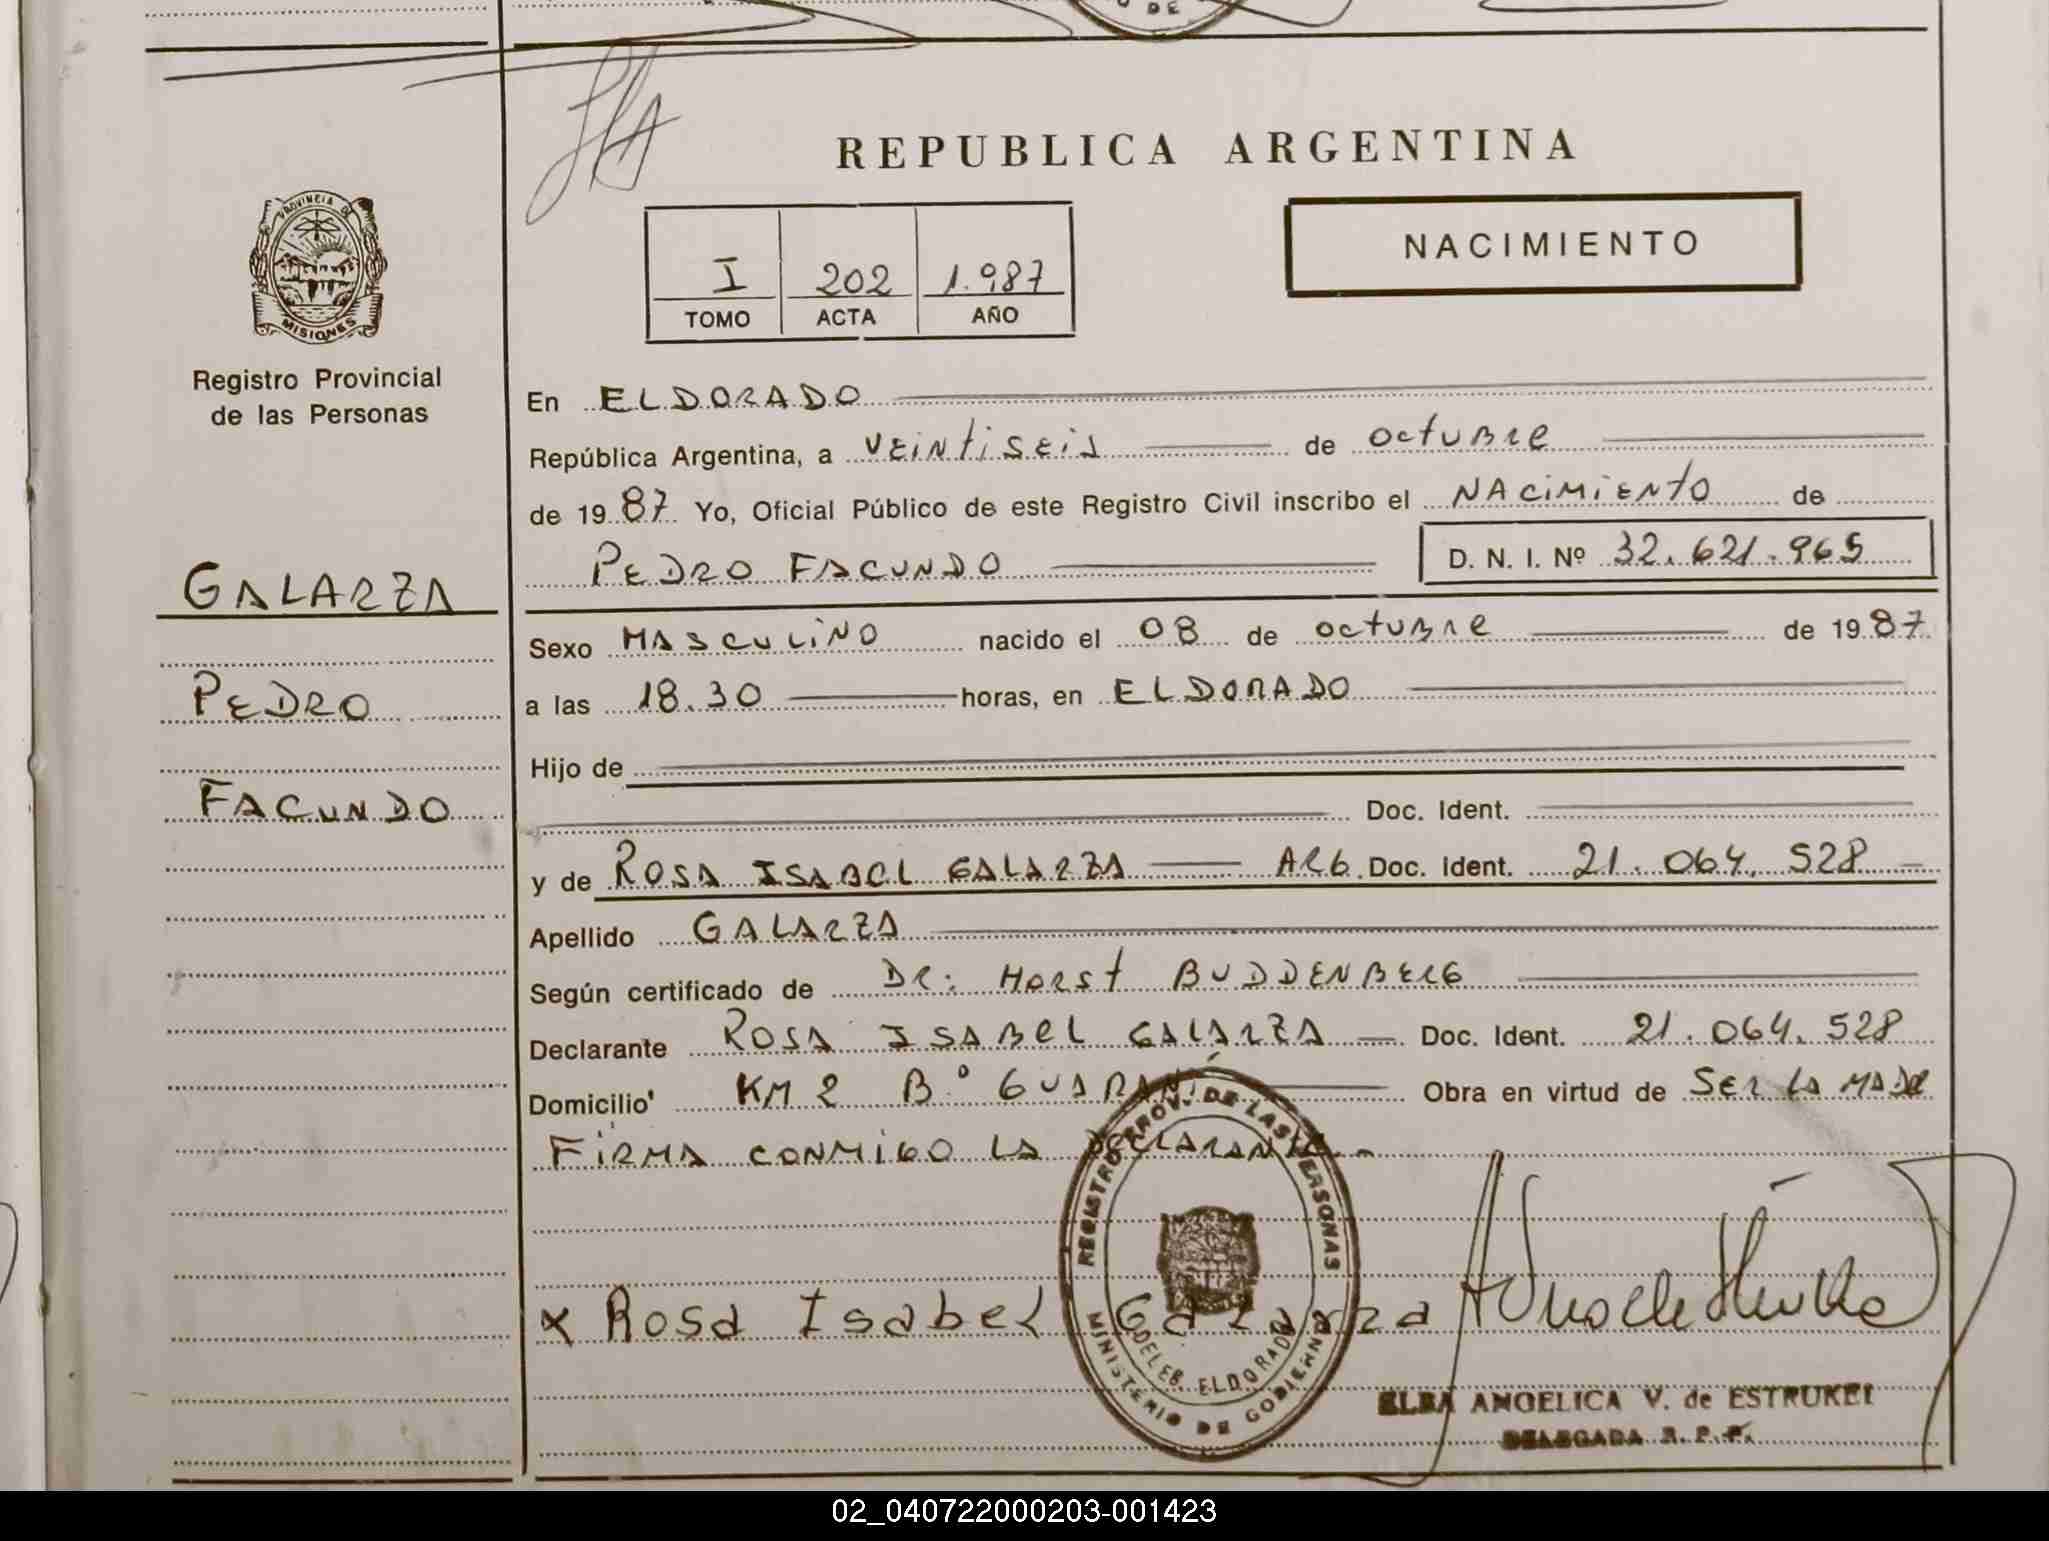 DE
REPUBLICA ARGENTINA
PROVINCIA DE
MISIONES
Registro Provincial
de las Personas
I 202 1.987
TOMO ACTA AÑO
NACIMIENTO
En ELDORADO
República Argentina, a VEINTISEIS de OCTUBRE
de 1987 Yo, Oficial Público de este Registro Civil inscribo el NACIMIENTO de
PEDRO FACUNDO D. N. I. Nº 32.621.965
GALARZA
PEDRO
FACUNDO
Sexo MASCULINO nacido el 08 de OCTUBRE de 1987
a las 18.30 horas, en ELDORADO
Hijo de
Doc. Ident.
y de ROSA ISABEL GALARZA ARG. Doc. Ident. 21.064.528
Apellido GALARZA
Según certificado de DR: HORST BUDDENBERG
Declarante ROSA ISABEL GALARZA Doc. Ident. 21.064.528
Domicilio KM 2 Bº GUARANI Obra en virtud de SER LA MADRE
FIRMA CONMIGO LA DECLARANTE.-
REGISTRO PROV. DE LAS PERSONAS
MINISTERIO DE GOBIERNO
ELDORADO
x Rosa Isabel Galarza
ELBA ANGELICA V. de ESTRUKEI
DELEGADA R. P. P.
02_040722000203-001423